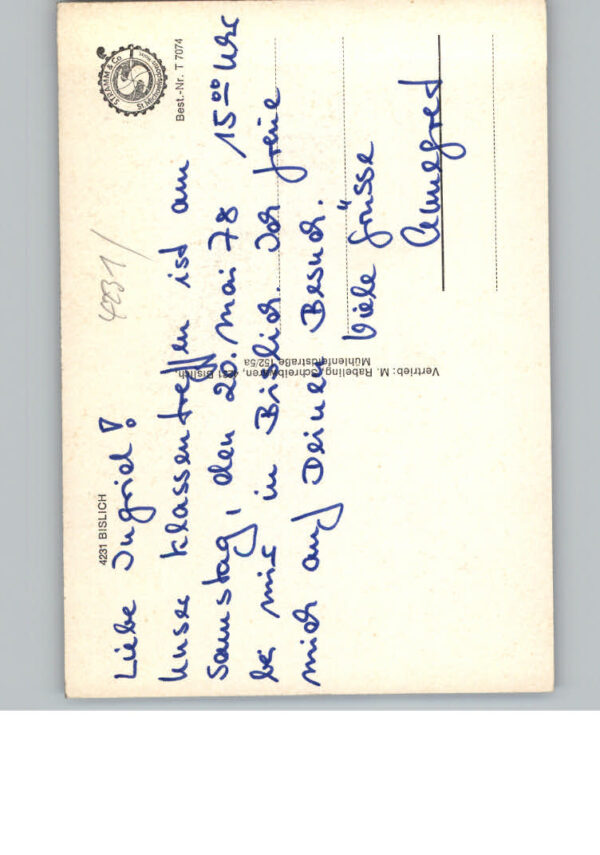 4231 BISLICH
Best.-Nr. T 7074
STRAMM & Co
4231/
Liebe Ingrid!
Unser Klassentreffen ist am
Samstag, den 20. Mai 78 15⁰⁰ Uhr
bei mir in Bislich. Ich freue
mich auf Deinen Besuch.
Viele Grüsse
Vertrieb: M. Rabeling, Schreibwaren, 4231 Bislich
Mühlenfeldstraße 152/5a